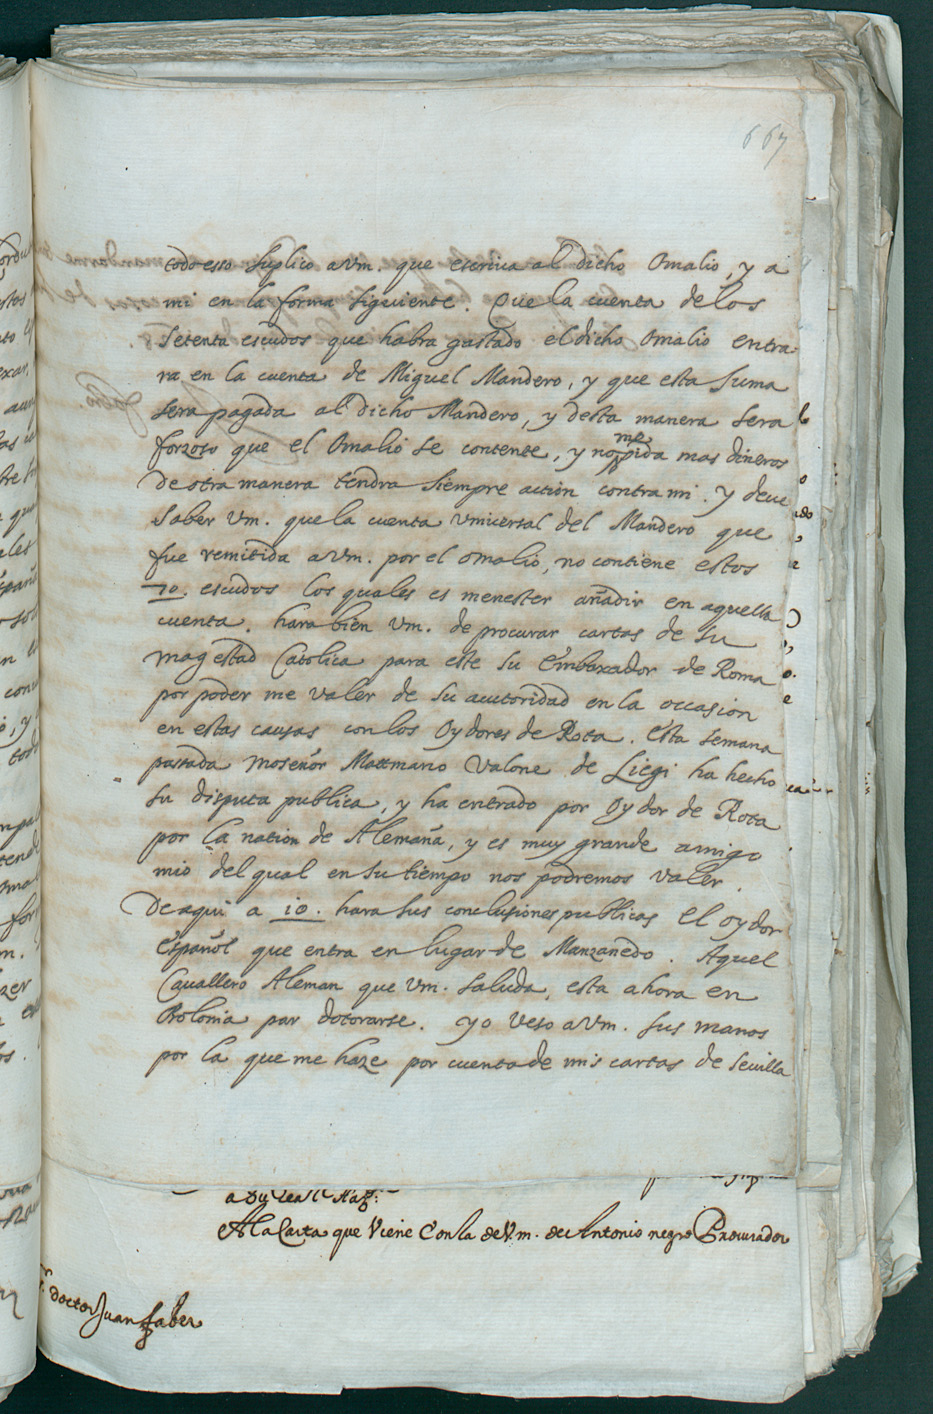 667
todo esto suplico a Vm. que escriua al dicho Omalio, y a
mi en la forma siguiente. Que la cuenta de los
setenta escudos que habra gastado el dicho Omalio entra-
ra en la cuenta de Miguel Mandero, y que esta suma
sera pagada al dicho Mandero, y desta manera sera
forzoso que el Omalio se contente, y no me pida mas dineros
de otra manera tendra siempre action contra mi. Y deue
saber Vm. que la cuenta vniuersal del Mandero que
fue remitida a Vm. por el Omalio, no contiene estos
70. escudos los quales es menester añadir en aquella
cuenta. hara bien Vm. de procurar cartas de su
magestad Catolica para este su Embaxador de Roma
por poder me valer de su autoridad en la occasion
en estas causas con los Oydores de Rota. Esta semana
passada Moseñor Mottmano Valone de Liegi ha hecho
su disputa publica, y ha entrado por Oydor de Rota
por la nation de Alemaña, y es muy grande amigo
mio del qual en su tiempo nos podremos valer.
De aqui a 10. hara sus conclusiones publicas el oydor
Español que entra en lugar de Manzanedo. Aquel
Cauallero Aleman que Vm. saluda, esta ahora en
Bolonia par dotorarse. Yo veso a Vm. sus manos
por la que me haze por cuenta de mis cartas de Seuilla
a Su Real Mag.
A la Carta que Viene Con la de V.m. de Antonio negro Procurador
doctor Juan faber